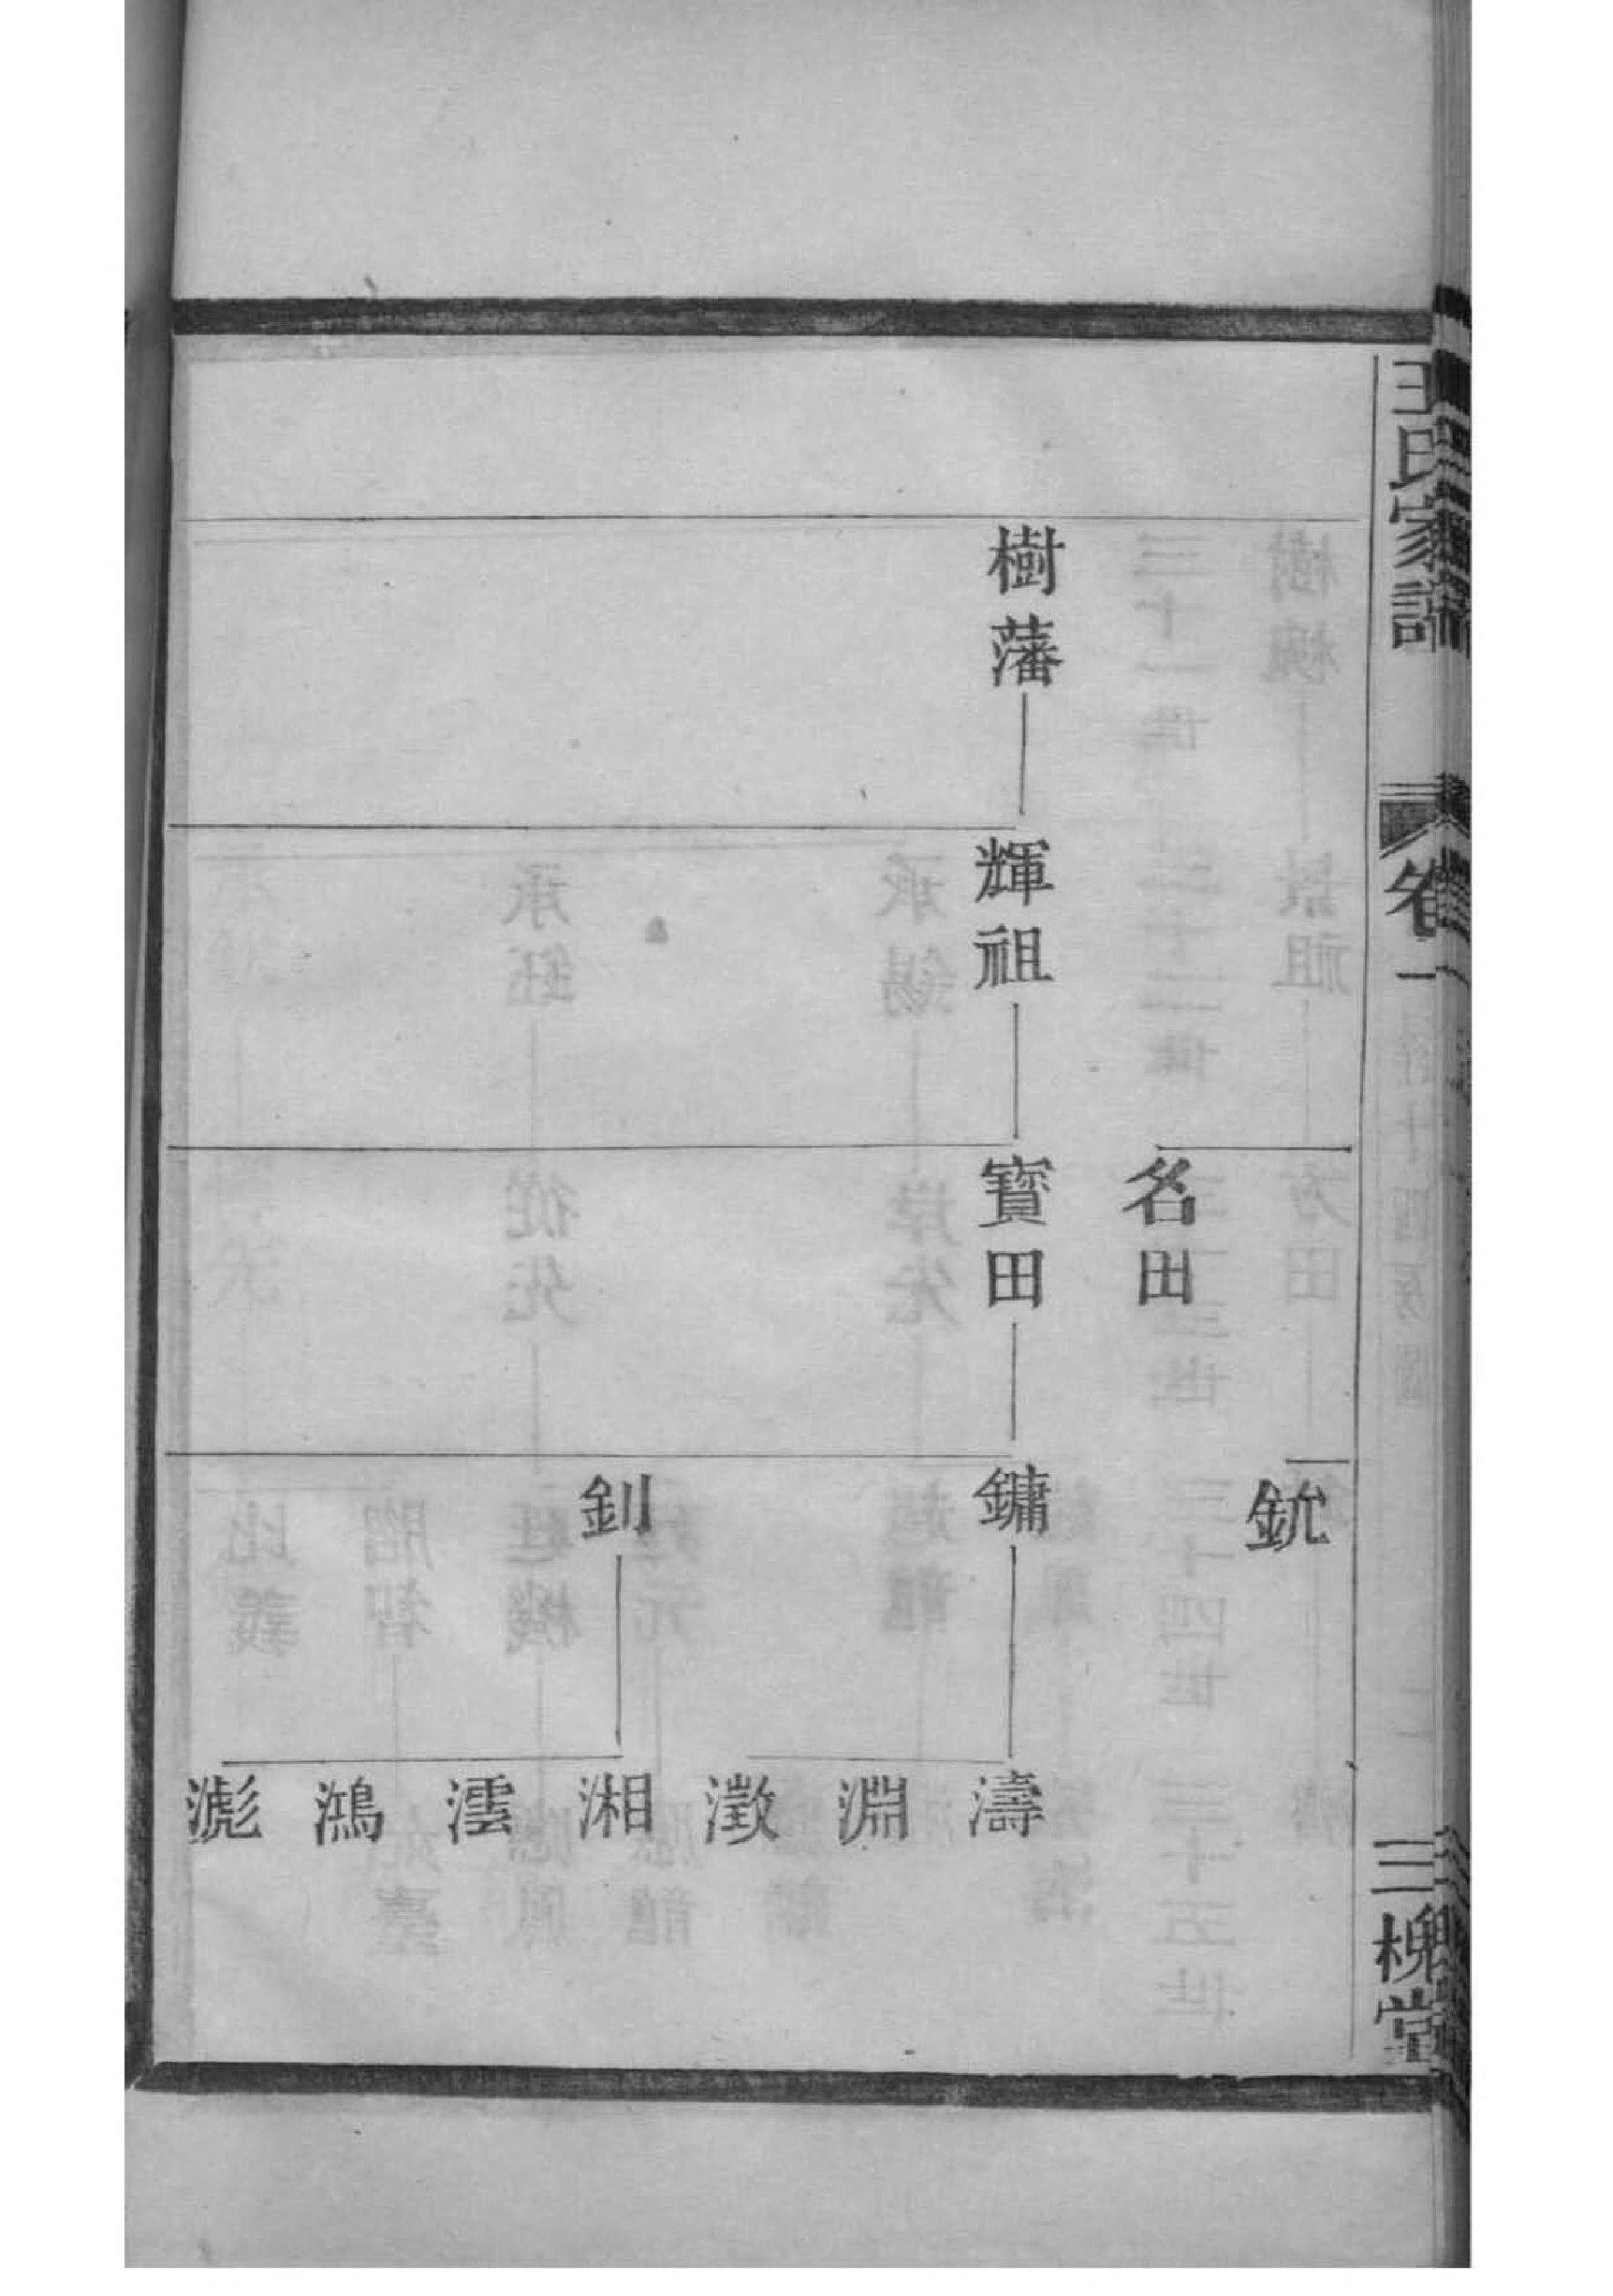 王氏家譜
卷一
三槐堂
樹藩
輝祖
名田
寶田
鈗
鏞
釗
濤
淵
澂
湘
澐
鴻
滮